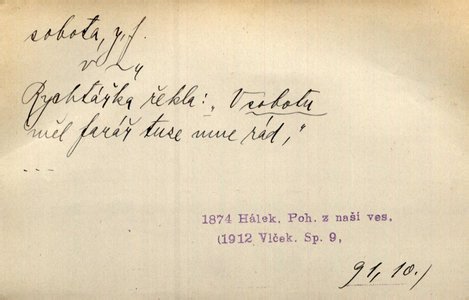 sobota, y, f.
v
Rychtářka řekla: „V sobotu
měl farář tuse mne rád,"
...
1874 Hálek. Poh. z naší ves.
(1912 Vlček. Sp. 9,
91, 10.)